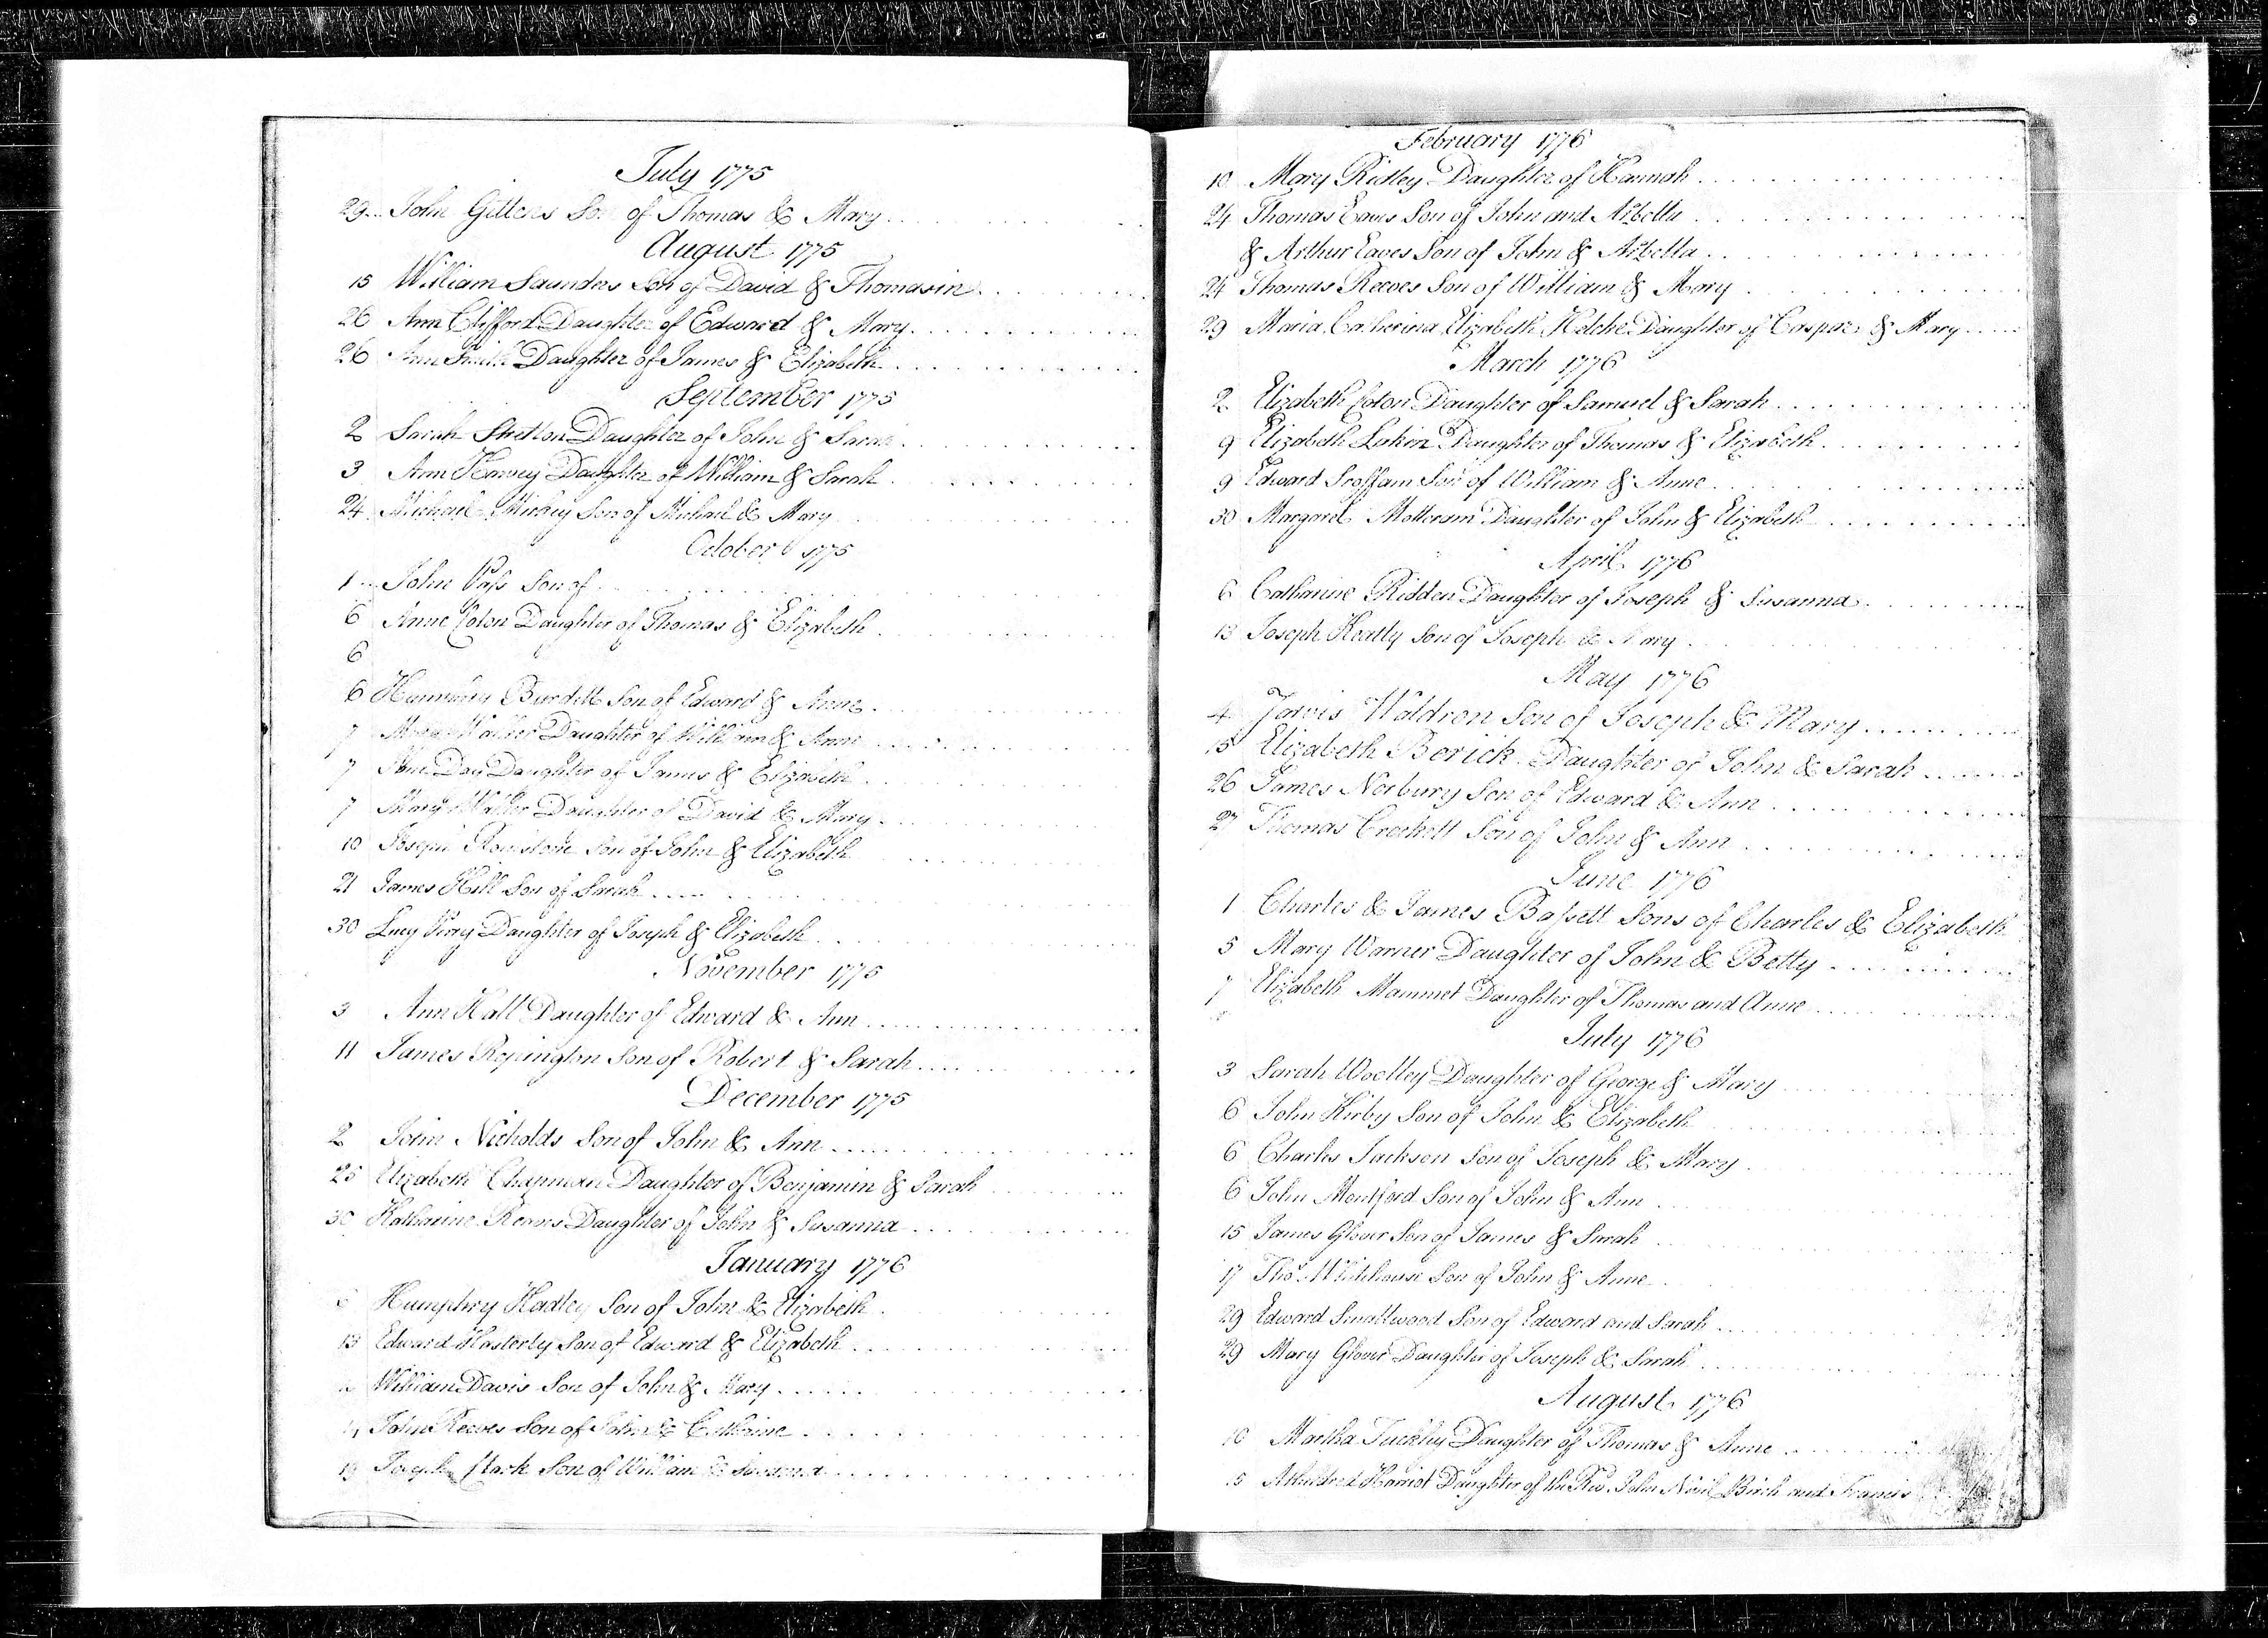 July 1775
29 John Gittens Son of Thomas & Mary
August 1775
15 William Saunders Son of David & Thomasin
26 Ann Clifford Daughter of Edward & Mary
26 Ann Smith Daughter of James & Elizabeth
September 1775
2 Sarah Shelton Daughter of John & Sarah
3 Ann Harvey Daughter of William & Sarah
24 Michael Mickey Son of Michael & Mary
October 1775
1 John Paſs Son of
6 Anne Coton Daughter of Thomas & Elizabeth
6
6 Humphry Burdett Son of Edward & Anne
7 Walker Daughter of William & Anne
7 Day Daughter of James & Elizabeth
7 Mary Daughter of David & Mary
10 Joseph Son of John & Elizabeth
21 James Hill Son of Sarah
30 Lucy Perry Daughter of Joseph & Elizabeth
November 1775
3 Ann Hall Daughter of Edward & Ann
11 James Repington Son of Robert & Sarah
December 1775
2 John Nicholds Son of John & Ann
25 Elizabeth Chapman Daughter of Benjamin & Sarah
30 Katharine Reeves Daughter of John & Susanna
January 1776
Humphry Hadley Son of John & Elizabeth
13 Edward Hasterly Son of Edward & Elizabeth
William Davis Son of John & Mary
John Reeves Son of John & Catharine
Joseph Stark Son of William & Susanna
February 1776
10 Mary Ridley Daughter of Hannah
24 Thomas Eaves Son of John and Arbella
& Arthur Eaves Son of John & Arbella
24 Thomas Reeves Son of William & Mary
29 Maria Catherina Elizabeth Daughter of Caspar & Mary
March 1776
2 Elizabeth Coton Daughter of Samuel & Sarah
9 Elizabeth Lakin Daughter of Thomas & Elizabeth
9 Edward Son of William & Anne
30 Margaret Motteram Daughter of John & Elizabeth
April 1776
6 Catharine Ridden Daughter of Joseph & Susanna
13 Joseph Heatly Son of Joseph & Mary
May 1776
4 Jarvis Waldron Son of Joseph & Mary
15 Elizabeth Berick Daughter of John & Sarah
26 James Norbury Son of Edward & Ann
27 Thomas Crockett Son of John & Ann
June 1776
1 Charles & James Baſsett Sons of Charles & Elizabeth
5 Mary Warner Daughter of John & Betty
7 Elizabeth Mammet Daughter of Thomas and Anne
July 1776
3 Sarah Woolley Daughter of George & Mary
6 John Kirby Son of John & Elizabeth
6 Charles Jackson Son of Joseph & Mary
6 John Montford Son of John & Ann
15 James Glover Son of James & Sarah
17 Thos. Whitehouse Son of John & Anne
29 Edward Smallwood Son of Edward and Sarah
29 Mary Glover Daughter of Joseph & Sarah
August 1776
10 Martha Tuckley Daughter of Thomas & Anne
15 Harriot Daughter of the Rev. John Birch and Francis